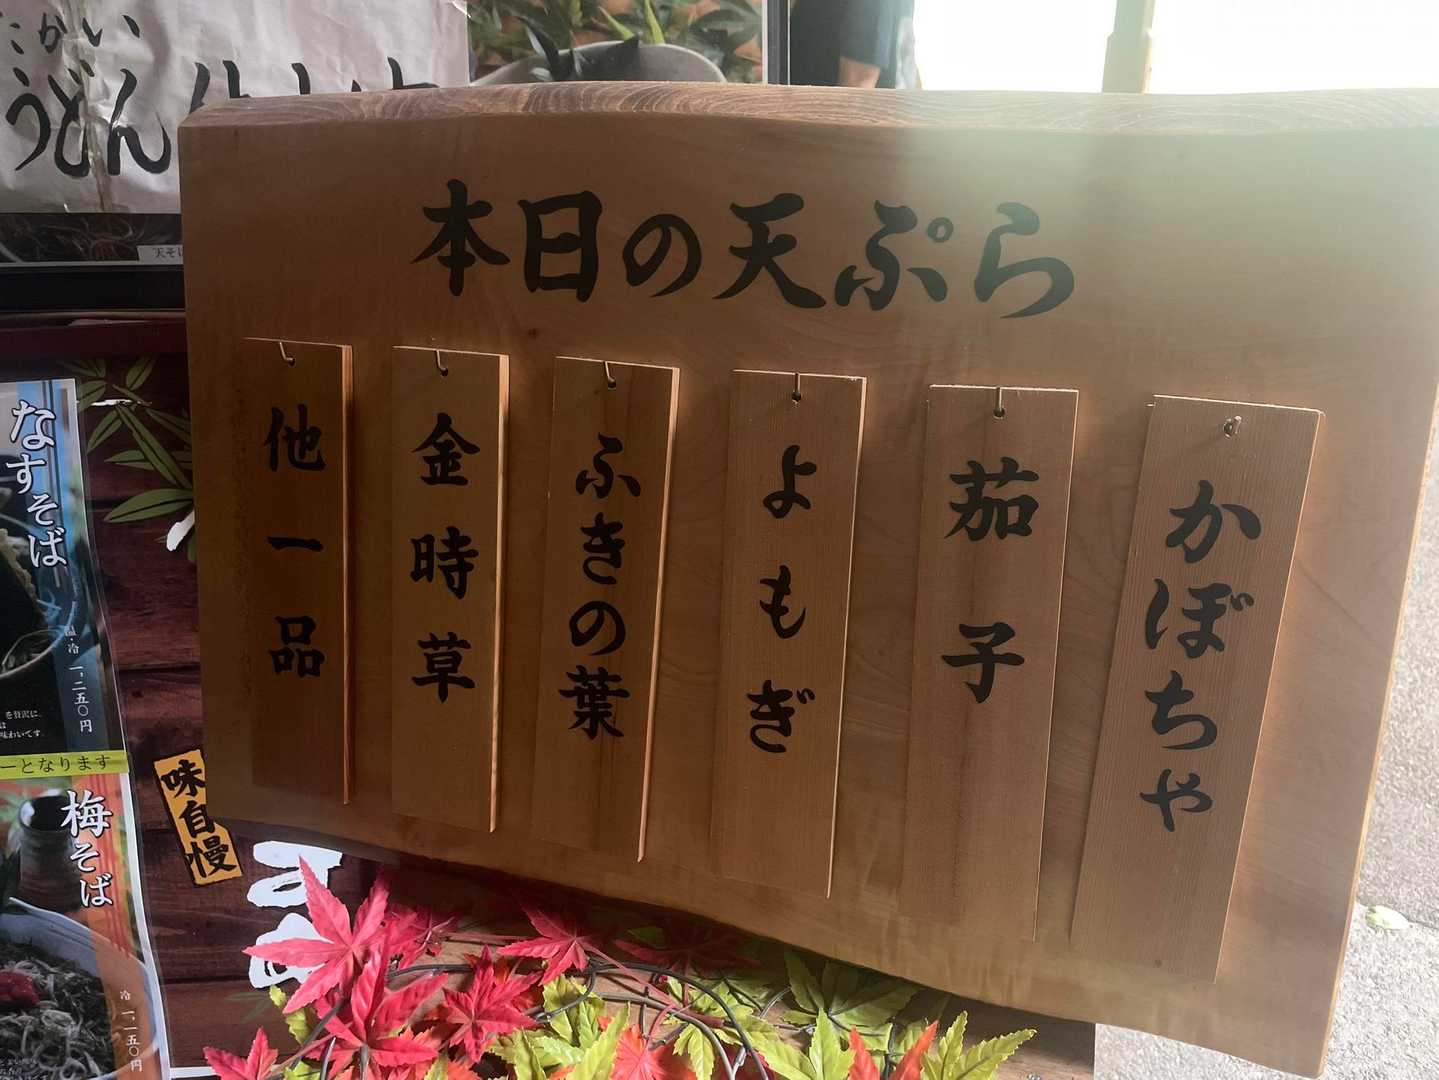 本日の天ぷら
かぼちゃ
茄子
よもぎ
ふきの葉
金時草
他一品
うどん
なすそば
温・冷 一、二五〇円
ーとなります
梅そば
冷 一、一五〇円
味自慢